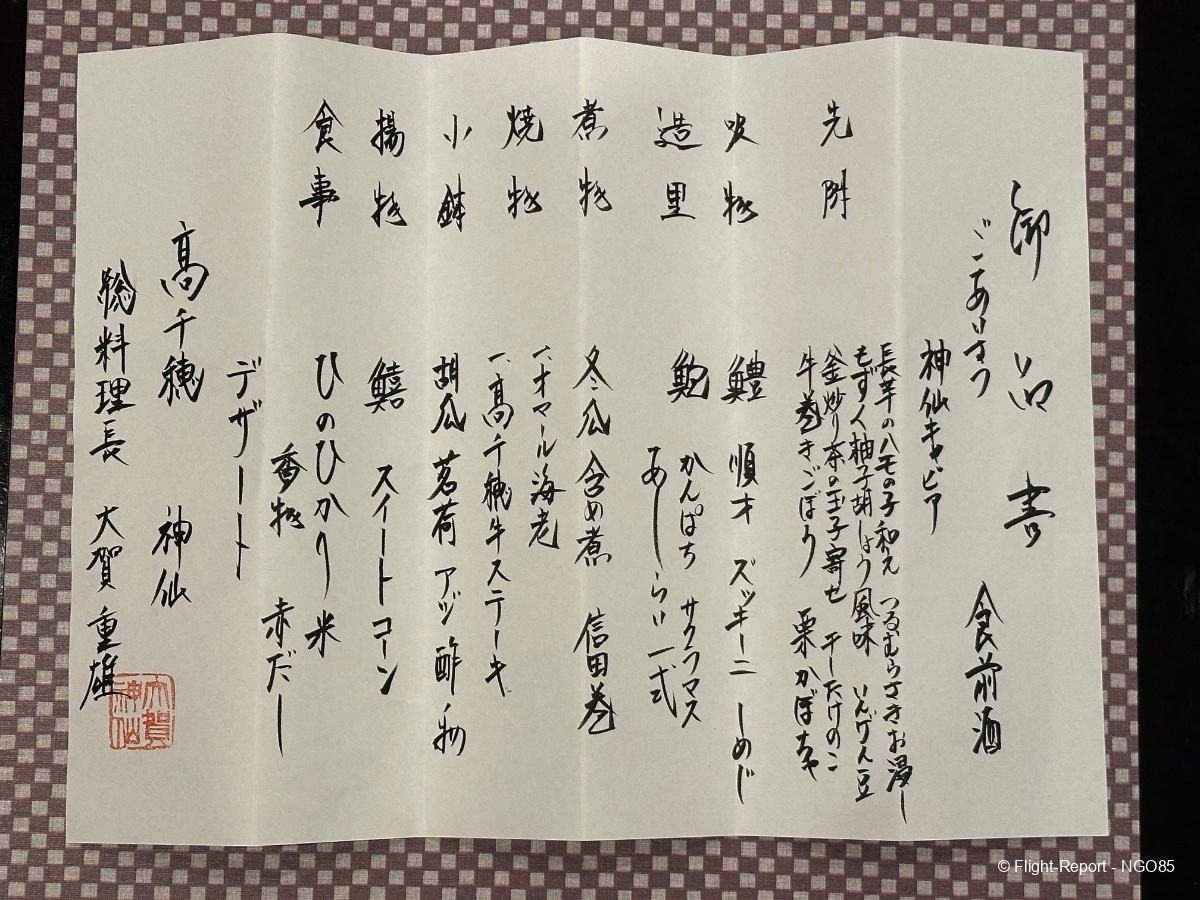 御品書
ごあいさつ 食前酒
神仙キャビア
先附
長芋のハモの子和え つるむらさきお浸し
もずく柚子胡しょう風味 いんげん豆
釜炒り茶の玉子寄せ 干したけのこ
牛巻きごぼう 栗かぼちゃ
吸物 鱧 順才 ズッキーニ しめじ
造里 鮑 かんぱち サクラマス
あしらい一式
煮物 冬瓜 含め煮 信田巻
焼物 一、オマール海老
一、高千穂牛ステーキ
小鉢 胡瓜 茗荷 アジ 酢物
揚物 鱚 スイートコーン
食事 ひのひかり米
香物 赤だし
デザート
高千穂 神仙
総料理長 大賀重雄
大賀
神仙
© Flight-Report - NGO85